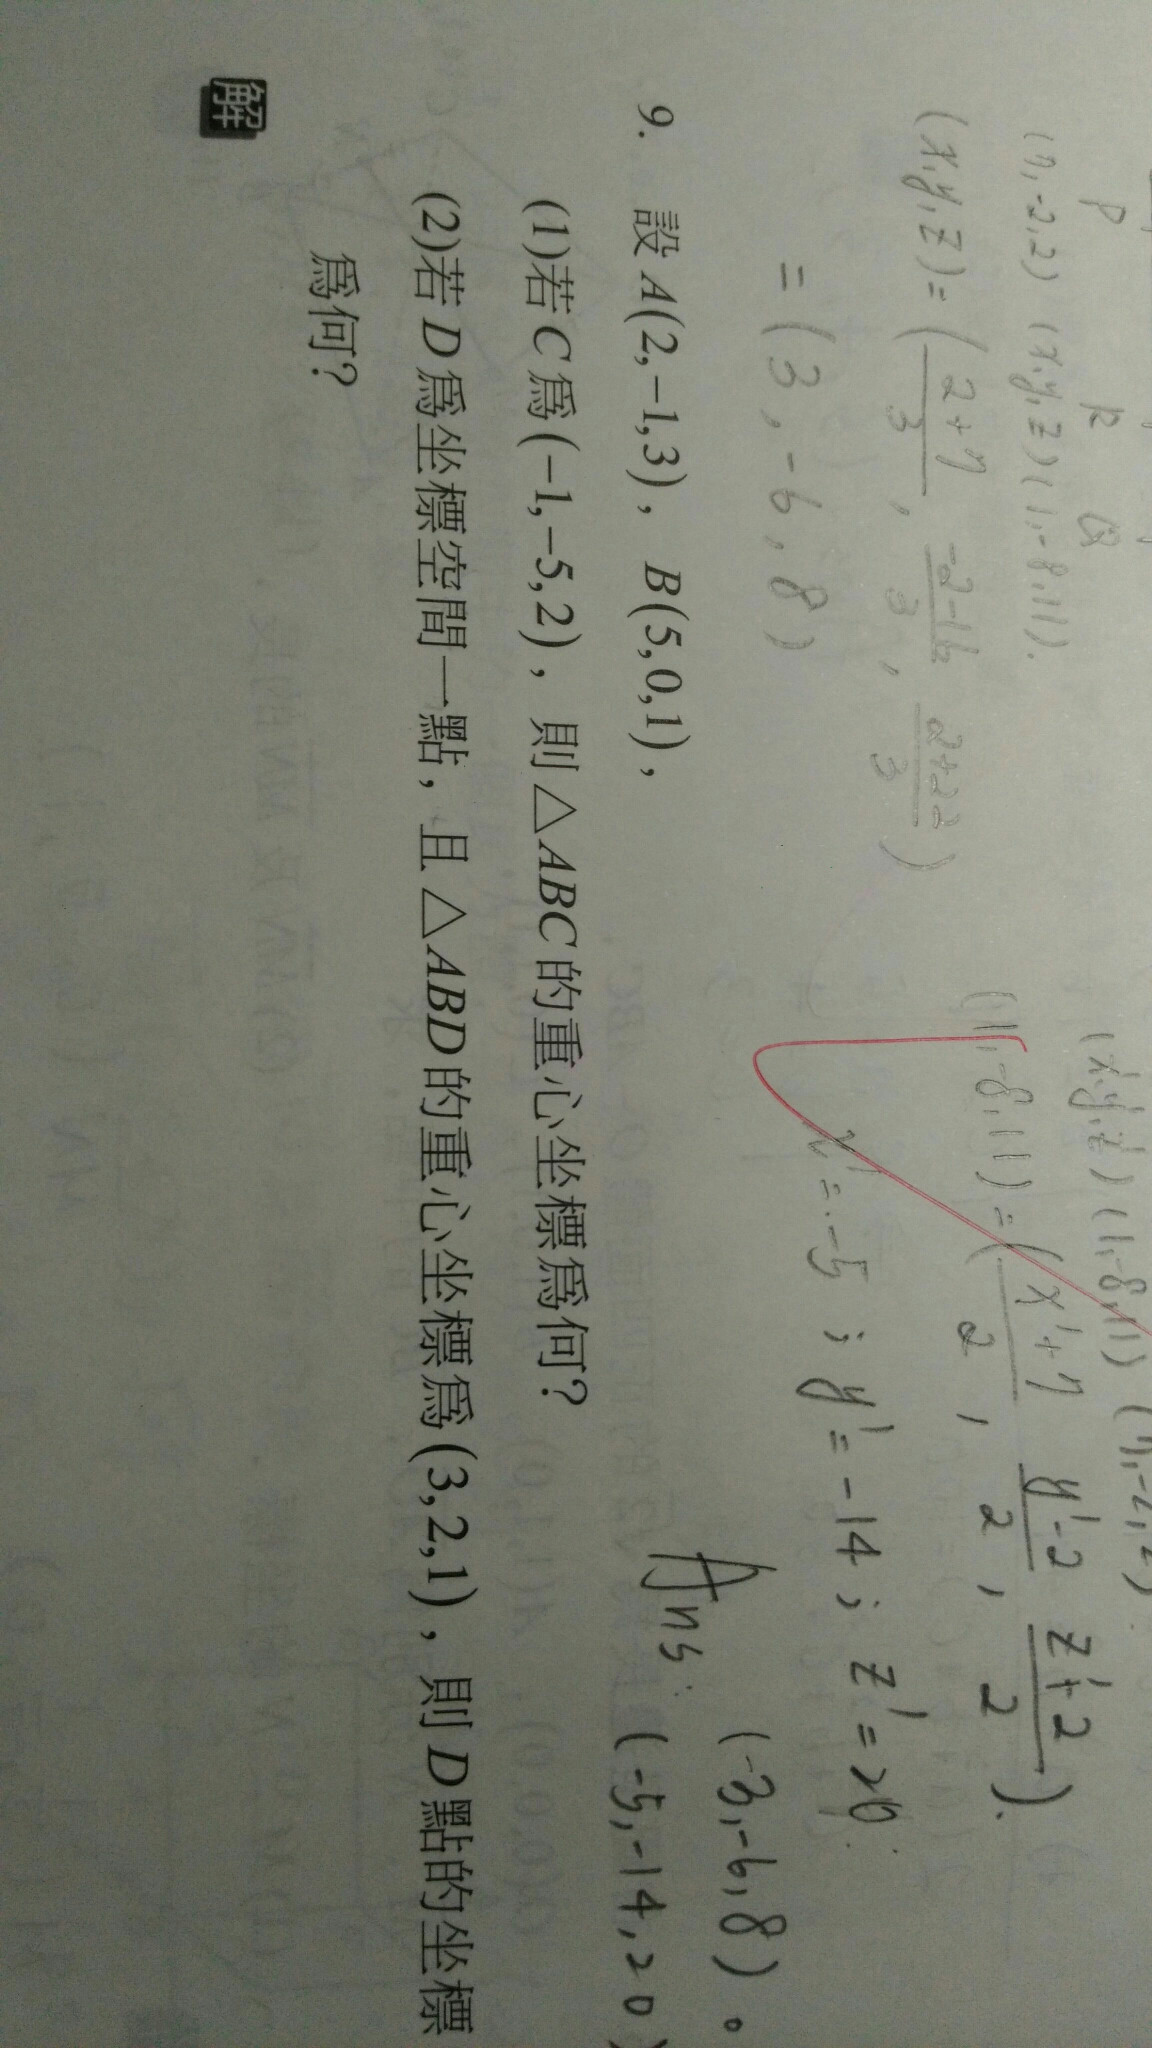 P R Q
(7,-2,2) (x,y,z) (1,-8,11).
(x,y,z)=(2+7/3, -2-16/3, 2+22/3)
=(3,-6,8)
(x',y',z') (1,-8,11) (7,-2,2)
(1,-8,11)=(x'+7/2, y'-2/2, z'+2/2).
x'=-5; y'=-14; z'=20.
Ans: (-3,-6,8)。
(-5,-14,20)
9. 設A(2,-1,3), B(5,0,1),
(1)若C為(-1,-5,2), 則△ABC的重心坐標為何?
(2)若D為坐標空間一點, 且△ABD的重心坐標為(3,2,1), 則D點的坐標
為何?
解